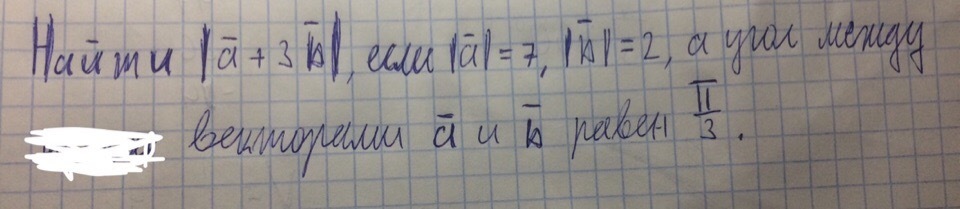 Найти |a̅ + 3b̅|, если |a̅| = 7, |b̅| = 2, а угол между
векторами a̅ и b̅ равен π/3.